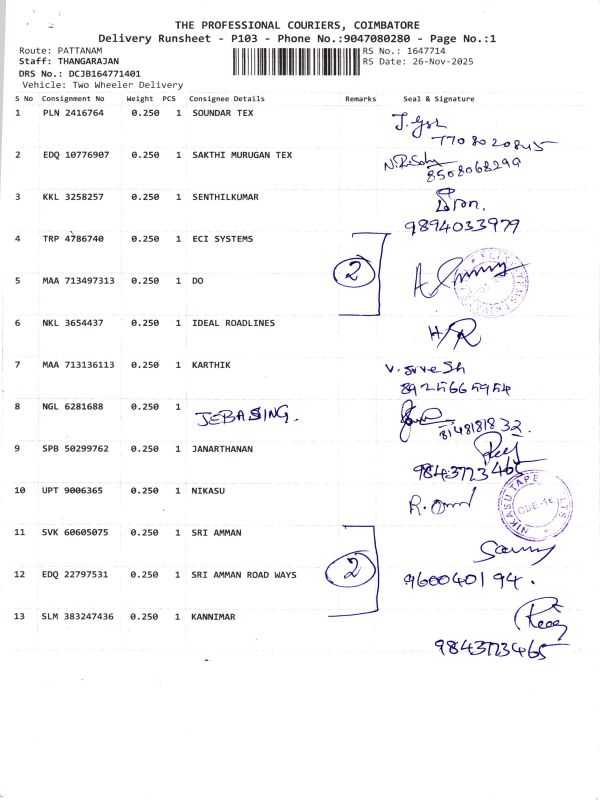 THE PROFESSIONAL COURIERS, COIMBATORE
Delivery Runsheet - P103 - Phone No.:9047080280 - Page No.:1
Route: PATTANAM
RS No.: 1647714
Staff: THANGARAJAN
RS Date: 26-Nov-2025
DRS No.: DCJB164771401
Vehicle: Two Wheeler Delivery
S No Consignment No Weight PCS Consignee Details Remarks Seal & Signature
1 PLN 2416764 0.250 1 SOUNDAR TEX
7708020845
2 EDQ 10776907 0.250 1 SAKTHI MURUGAN TEX
8508068299
3 KKL 3258257 0.250 1 SENTHILKUMAR
9894033979
4 TRP 4786740 0.250 1 ECI SYSTEMS
2
5 MAA 713497313 0.250 1 DO
6 NKL 3654437 0.250 1 IDEAL ROADLINES
H/R
7 MAA 713136113 0.250 1 KARTHIK
V. Suresh
8925665954
8 NGL 6281688 0.250 1 JEBASING.
8148181832.
9 SPB 50299762 0.250 1 JANARTHANAN
9843723465
10 UPT 9006365 0.250 1 NIKASU
NIKASU TAPE
CBE-16
11 SVK 60605075 0.250 1 SRI AMMAN
2
12 EDQ 22797531 0.250 1 SRI AMMAN ROAD WAYS
960040194.
13 SLM 383247436 0.250 1 KANNIMAR
9843723465